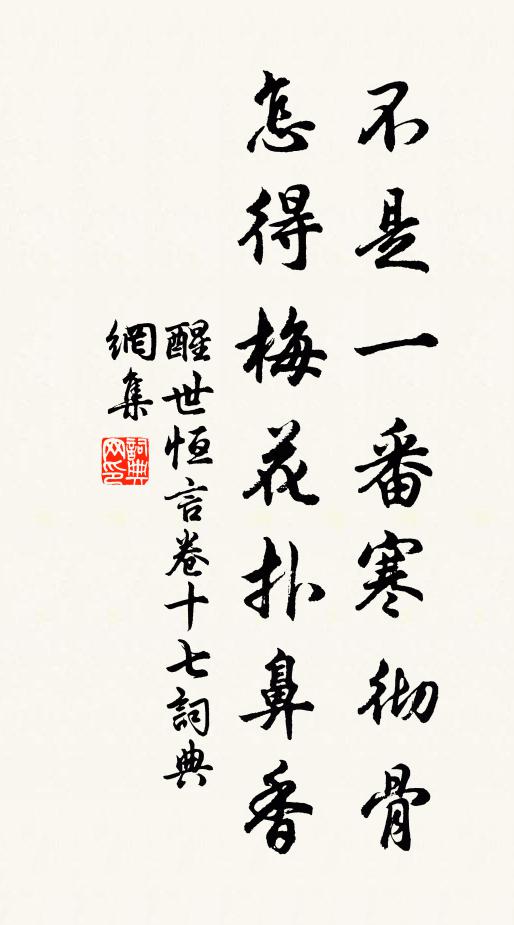 不是一番寒彻骨
怎得梅花扑鼻香
醒世恒言卷十七詞典
網集
詞典
网印